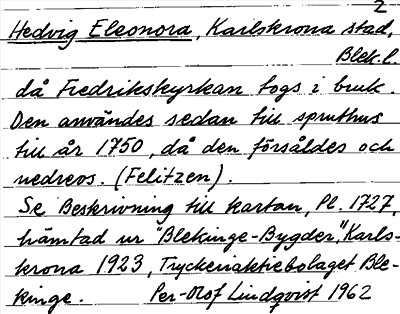 2
Hedvig Eleonora, Karlskrona stad,
Blek. l.
då Fredrikskyrkan togs i bruk.
Den användes sedan till spruthus
till år 1750, då den försåldes och
nedrevs. (Felitzen).
Se Beskrivning till kartan, Pl. 1727,
hämtad ur "Blekinge-Bygder", Karls-
krona 1923, Tryckeriaktiebolaget Ble-
kinge. Per-Olof Lindqvist 1962